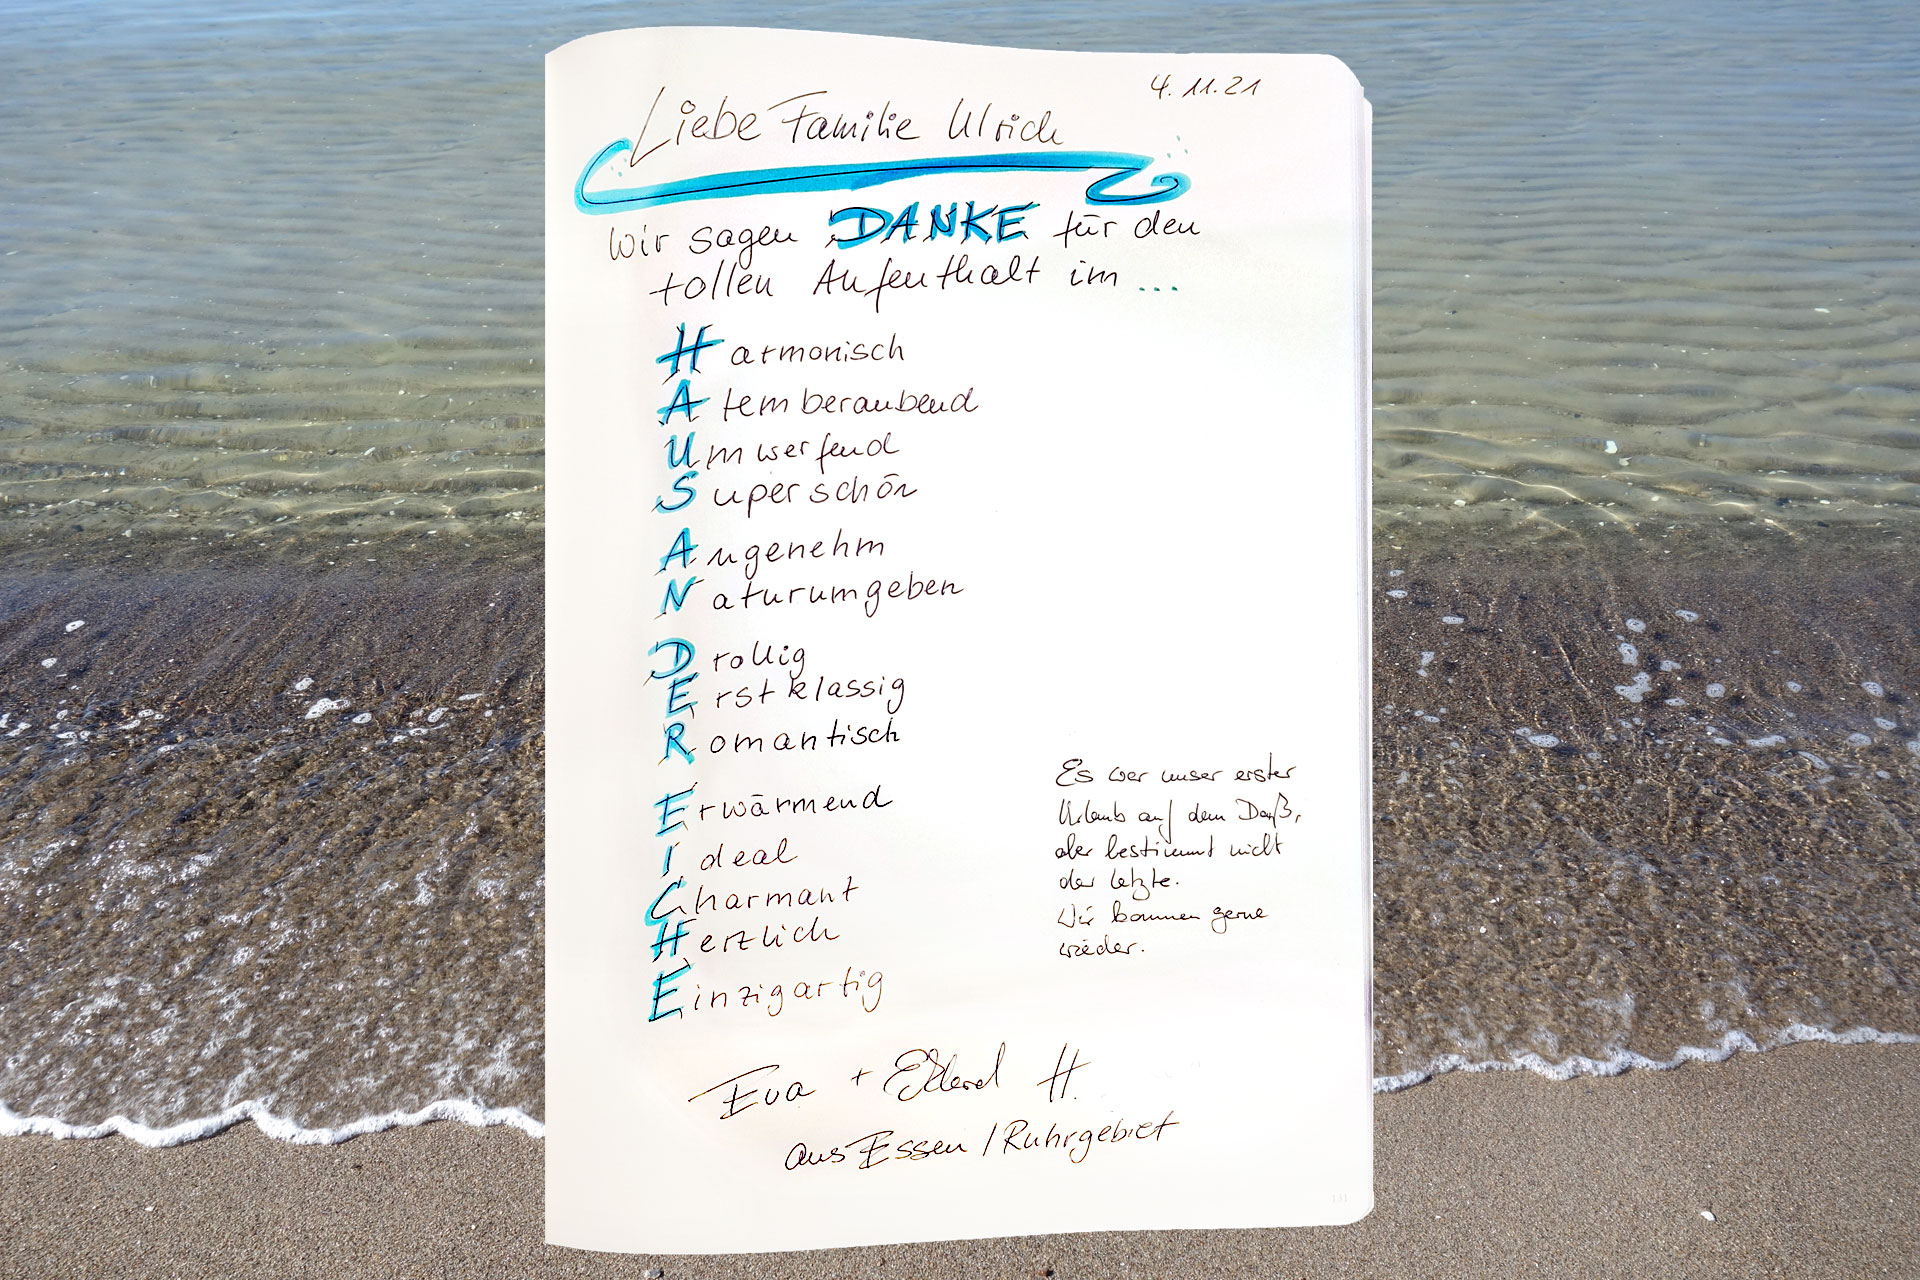 4.11.21
Liebe Familie Ulrich
Wir sagen DANKE für den
tollen Aufenthalt im ...
Harmonisch
Atemberaubend
Umwerfend
Superschön
Angenehm
Naturumgeben
Drollig
Erstklassig
Romantisch
Erwärmend
Ideal
Charmant
Herzlich
Einzigartig
Es war unser erster
Urlaub auf dem Darß,
aber bestimmt nicht
der letzte.
Wir kommen gerne
wieder.
Eva + Ekkard H.
aus Essen / Ruhrgebiet
131